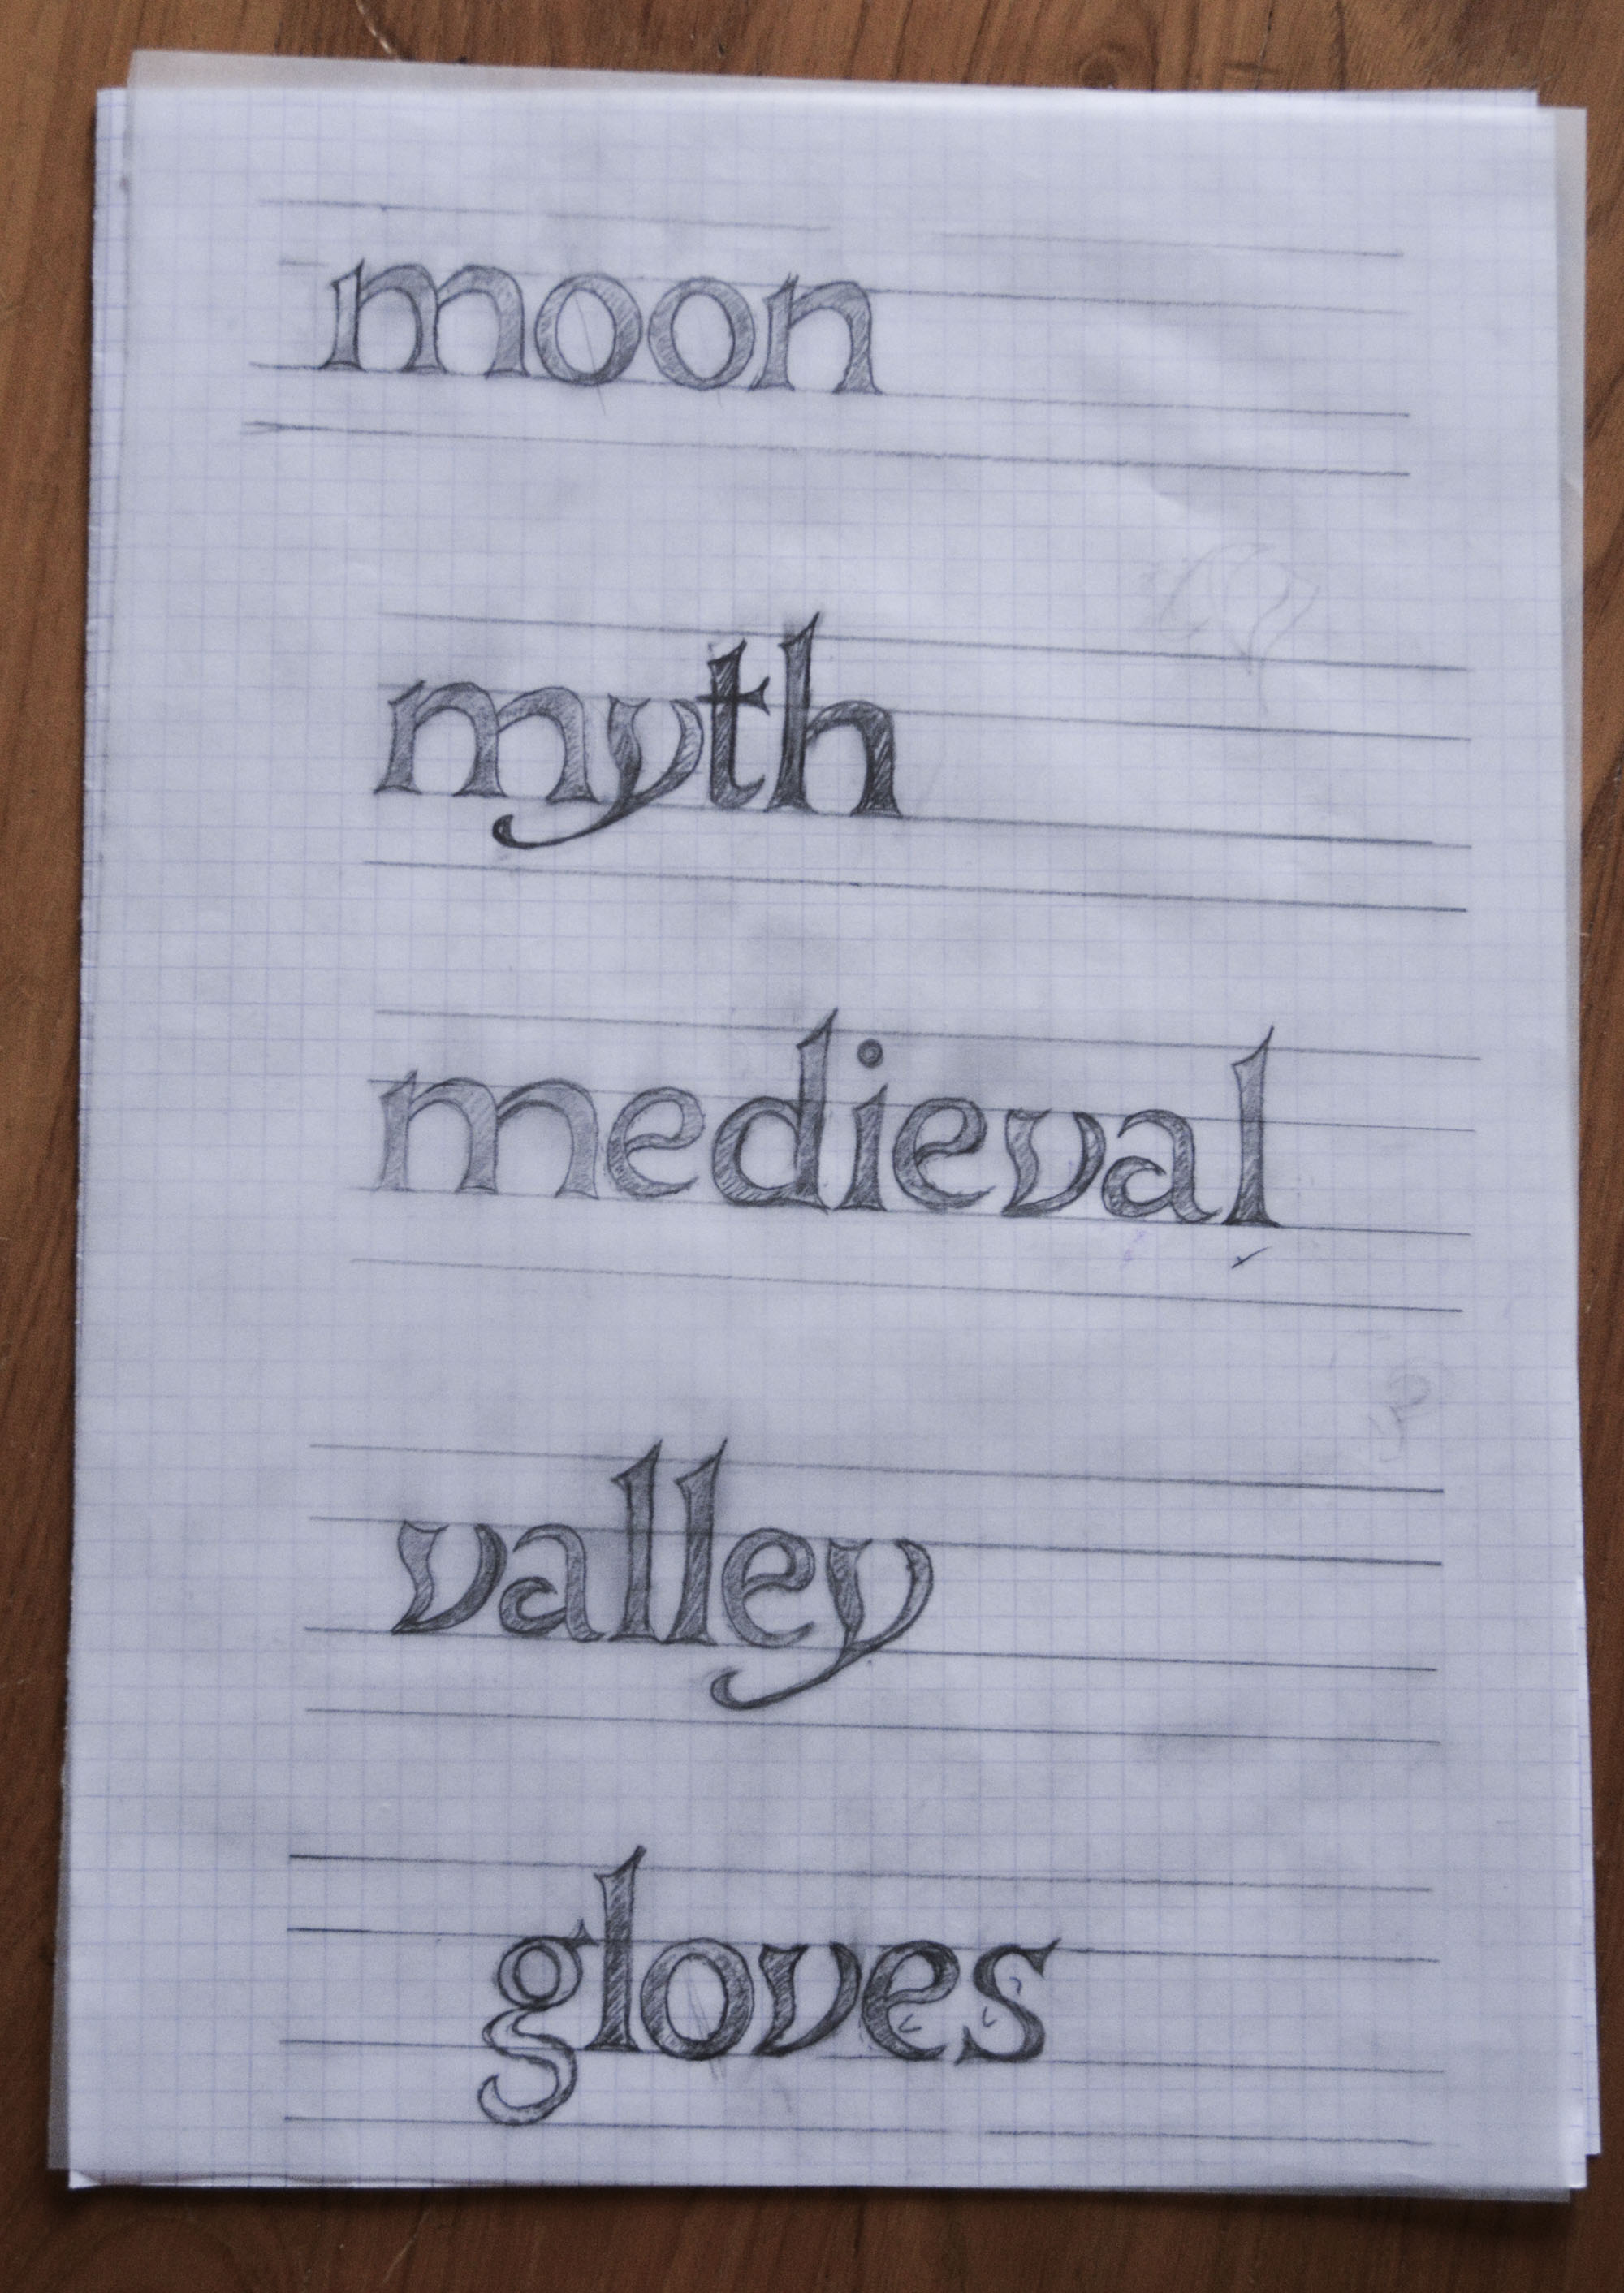 moon
myth
medieval
valley
gloves